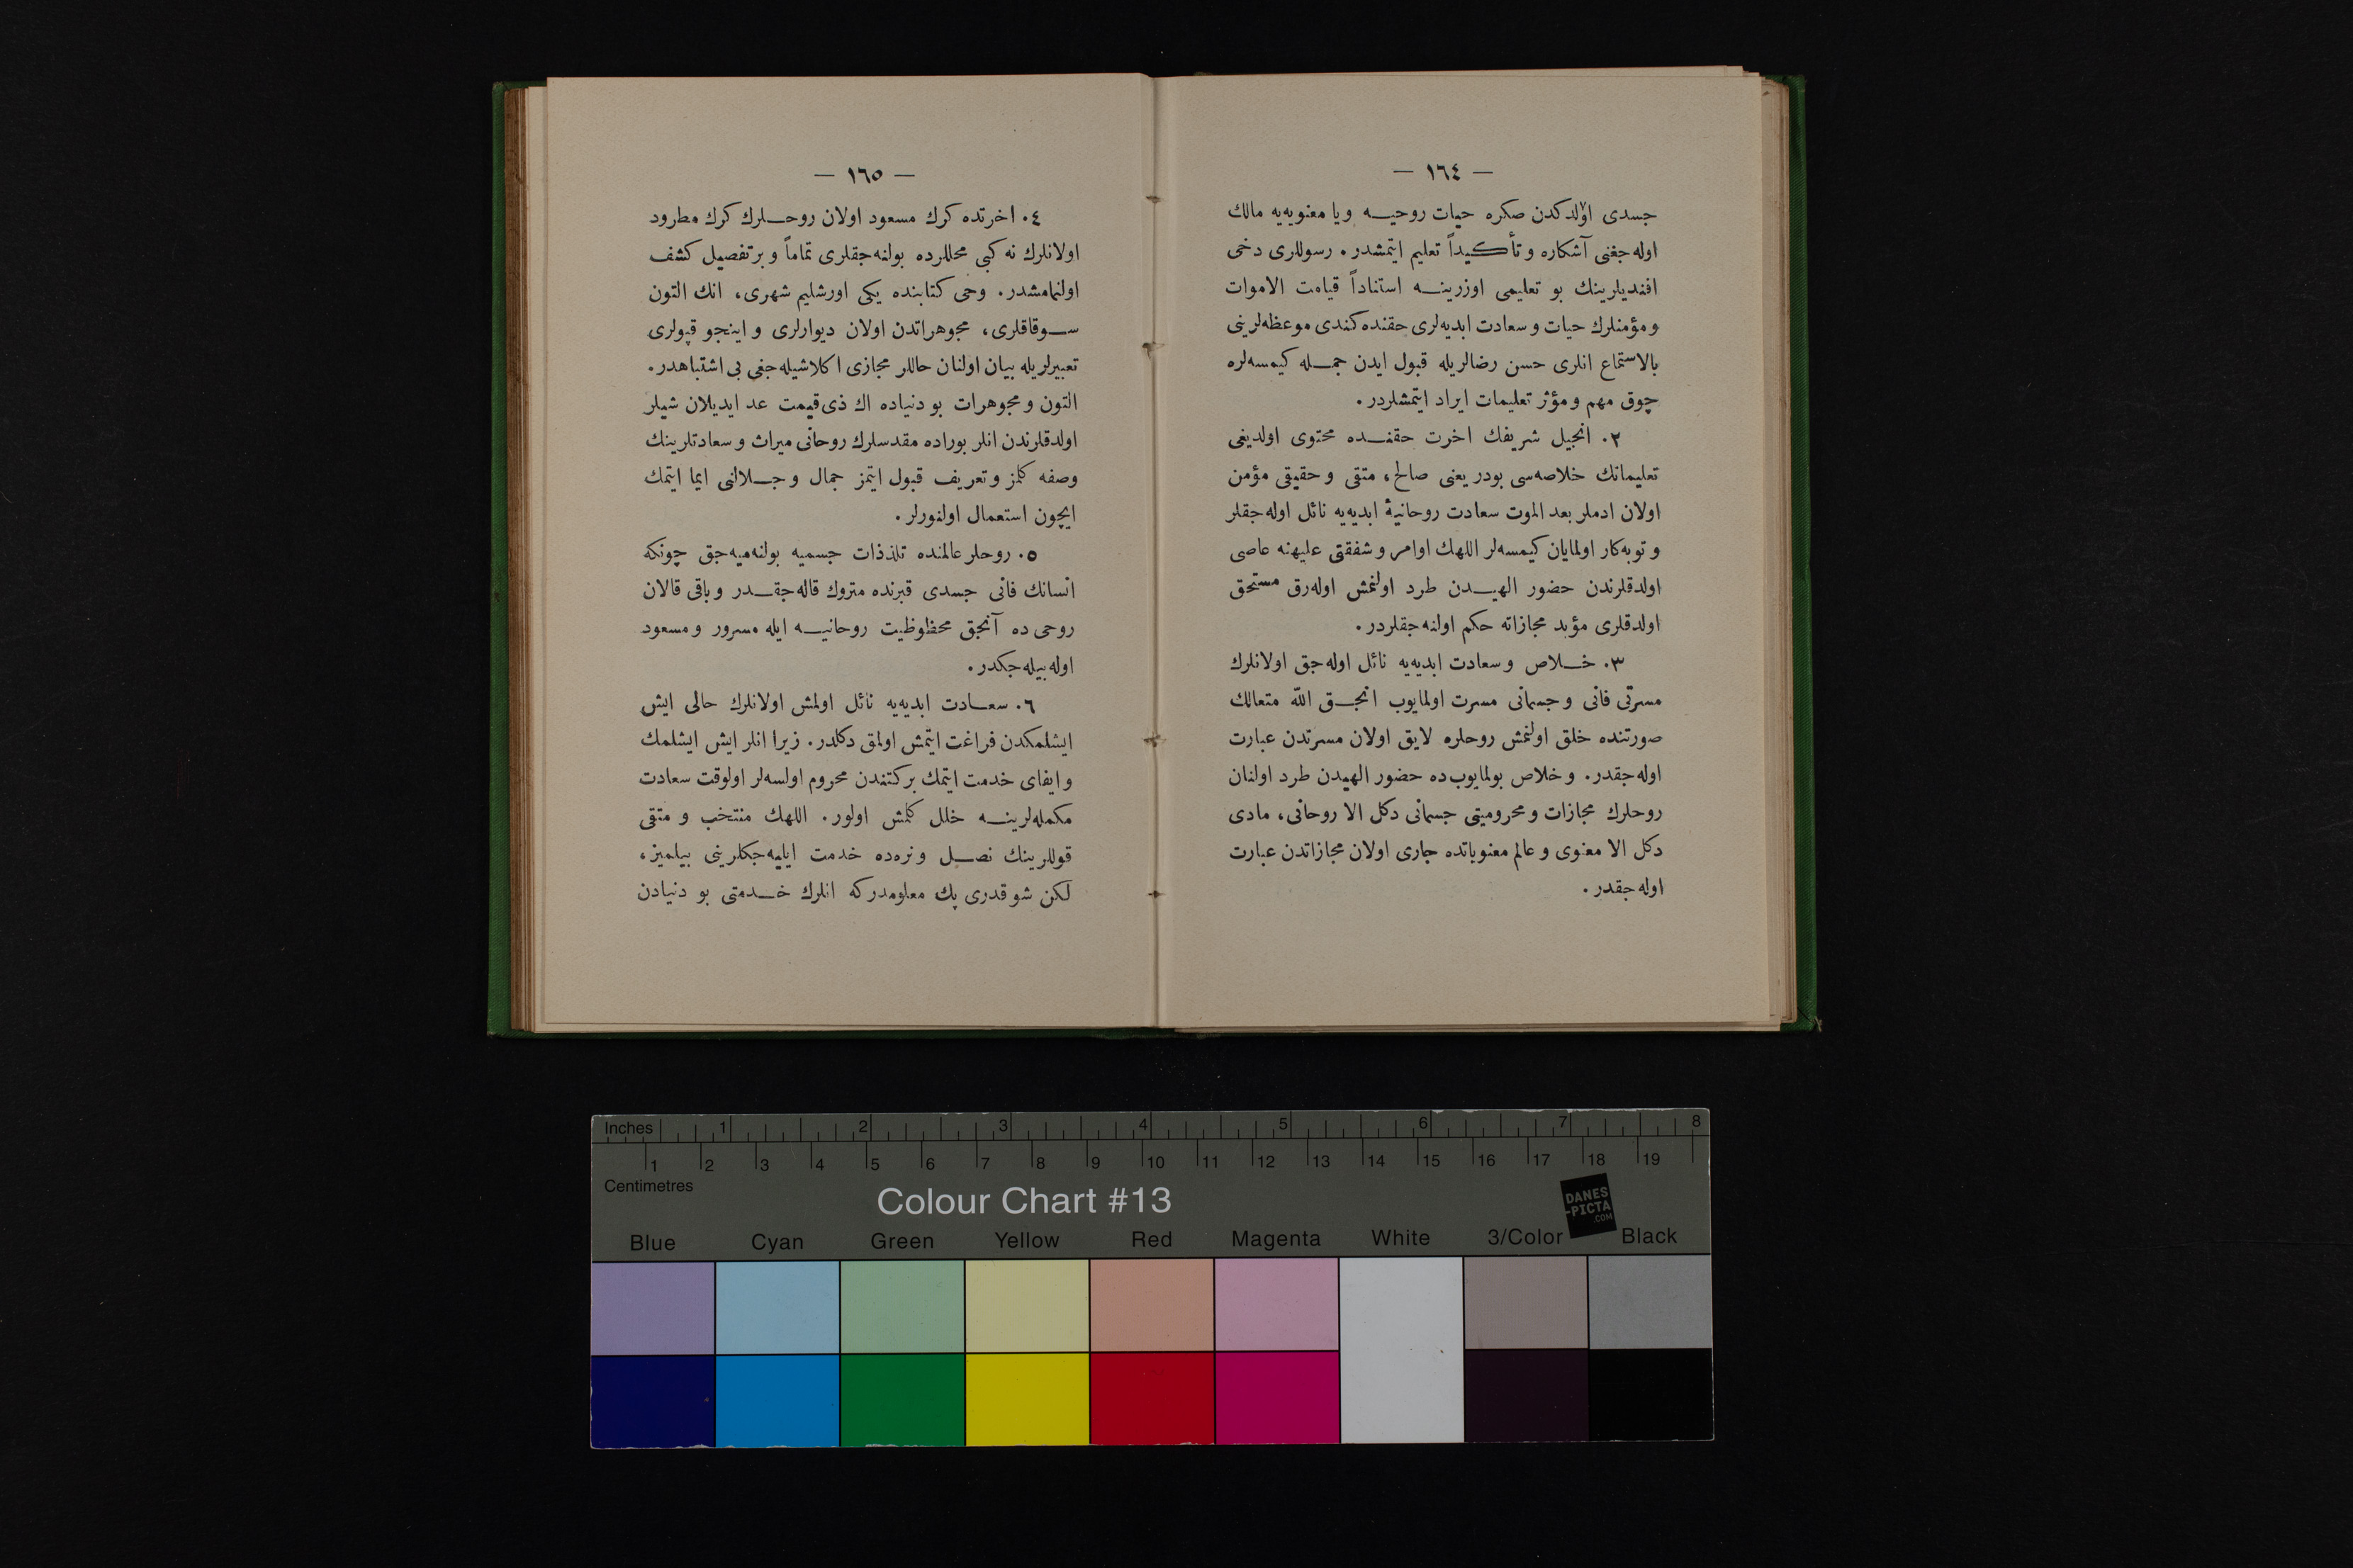 — ١٦٤ —
جسدى اولدكدن صكره حيات روحيــه ويا معنويه‌يه مالك
اوله‌جغنى آشكاره وتأكيداً تعليم ايتمشدر. رسوللرى دخى
افنديلرينك بو تعليمى اوزرينــه استناداً قيامت الاموات
ومؤمنلرك حيات وسعادت ابديه‌لرى حقنده كندى موعظه‌لرينى
بالاستماع انلرى حسن رضالريله قبول ايدن جمــله كيمسه‌لره
چوق مهم ومؤثر تعليمات ايراد ايتمشلردر.
٢. انجيل شريفك اخرت حقنــده محتوى اولديغى
تعليماتك خلاصه‌سى بودر يعنى صالح، متقى وحقيقى مؤمن
اولان ادملر بعد الموت سعادت روحانيۀ ابديه‌يه نائل اوله‌جقلر
وتوبه‌كار اولمايان كيمسه‌لر اللهك اوامر وشفقتى عليهنه عاصى
اولدقلرندن حضور الهيــدن طرد اولنمش اوله‌رق مستحق
اولدقلرى مؤبد مجازاته حكم اولنه‌جقلردر.
٣. خــلاص وسعادت ابديه‌يه نائل اوله‌جق اولانلرك
مسرتى فانى وجسمانى مسرت اولمايوب انجــق الله متعالك
صورتنده خلق اولنمش روحلره لايق اولان مسرتدن عبارت
اوله‌جقدر. وخلاص بولمايوب‌ده حضور الهيدن طرد اولنان
روحلرك مجازات ومحروميتى جسمانى دكل الا روحانى، مادى
دكل الا معنوى وعالم معنوياتده جارى اولان مجازاتدن عبارت
اوله‌جقدر.
— ١٦٥ —
٤. اخرتده كرك مسعود اولان روحــلرك كرك مطرود
اولانلرك نه كبى محللرده بولنه‌جقلرى تماماً وبرتفصيل كشف
اولنمامشدر. وحى كتابنده يكى اورشليم شهرى، انك التون
ســوقاقلرى، مجوهراتدن اولان ديوارلرى واينجو قپولرى
تعبيرلريله بيان اولنان حاللر مجازى اكلاشيله‌جغى بى اشتباهدر.
التون ومجوهرات بو دنياده اك ذى‌قيمت عد ايديلان شيلر
اولدقلرندن انلر بوراده مقدسلرك روحانى ميراث وسعادتلرينك
وصفه كلمز وتعريف قبول ايتمز جمال وجــلالنى ايما ايتمك
ايچون استعمال اولنورلر.
٥. روحلر عالمنده تلذذات جسميه بولنه‌ميه‌جق چونكه
انسانك فانى جسدى قبرنده متروك قاله‌جقــدر وباقى قالان
روحى ده آنجق محظوظيت روحانيــه ايله مسرور ومسعود
اوله‌بيله‌جكدر.
٦. سعــادت ابديه‌يه نائل اولمش اولانلرك حالى ايش
ايشلمكدن فراغت ايتمش اولمق دكلدر. زيرا انلر ايش ايشلمك
وايفاى خدمت ايتمك بركتندن محروم اولسه‌لر اولوقت سعادت
مكمله‌لرينــه خلل كلمش اولور. اللهك منتخب ومتقى
قوللرينك نصــل ونره‌ده خدمت ايليه‌جكلرينى بيلميز،
لكن شوقدرى پك معلومدركه انلرك خــدمتى بو دنيادن
Inches 1 2 3 4 5 6 7 8
1 2 3 4 5 6 7 8 9 10 11 12 13 14 15 16 17 18 19
Centimetres
Colour Chart #13
DANES
-PICTA
.COM
Blue Cyan Green Yellow Red Magenta White 3/Color Black